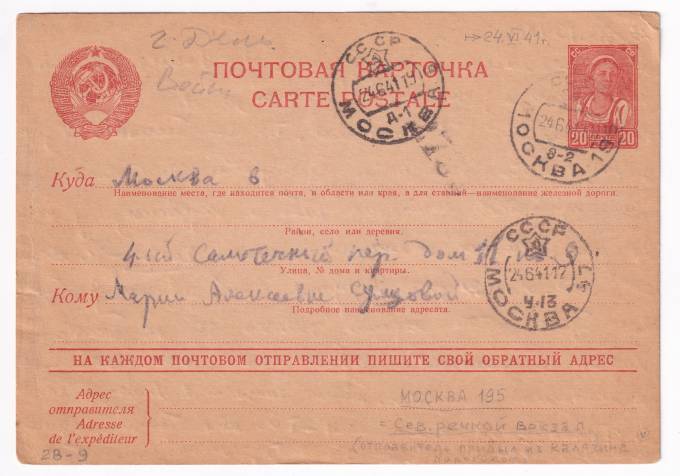 24.VI.41г.
СССР
24.6.41 19
Д-1
МОСКВА 9
ПОЧТОВАЯ КАРТОЧКА
CARTE POSTALE
24.6.41
МОСКВА 195
20 20
Куда Москва 6
Наименование места, где находится почта, и области или края, а для станций—наименование железной дороги.
Район, село или деревня.
4-ый Самотечный пер. дом 11
Улица, № дома и квартиры.
Кому Марии Алексеевне
Подробное наименование адресата.
СССР
24.6.41 17
У-13
МОСКВА 47
НА КАЖДОМ ПОЧТОВОМ ОТПРАВЛЕНИИ ПИШИТЕ СВОЙ ОБРАТНЫЙ АДРЕС
Адрес
отправителя
Adresse
de l'expéditeur
МОСКВА 195
= Сев. речной вокзал
(отправитель прибыл из Калязина
2В-9